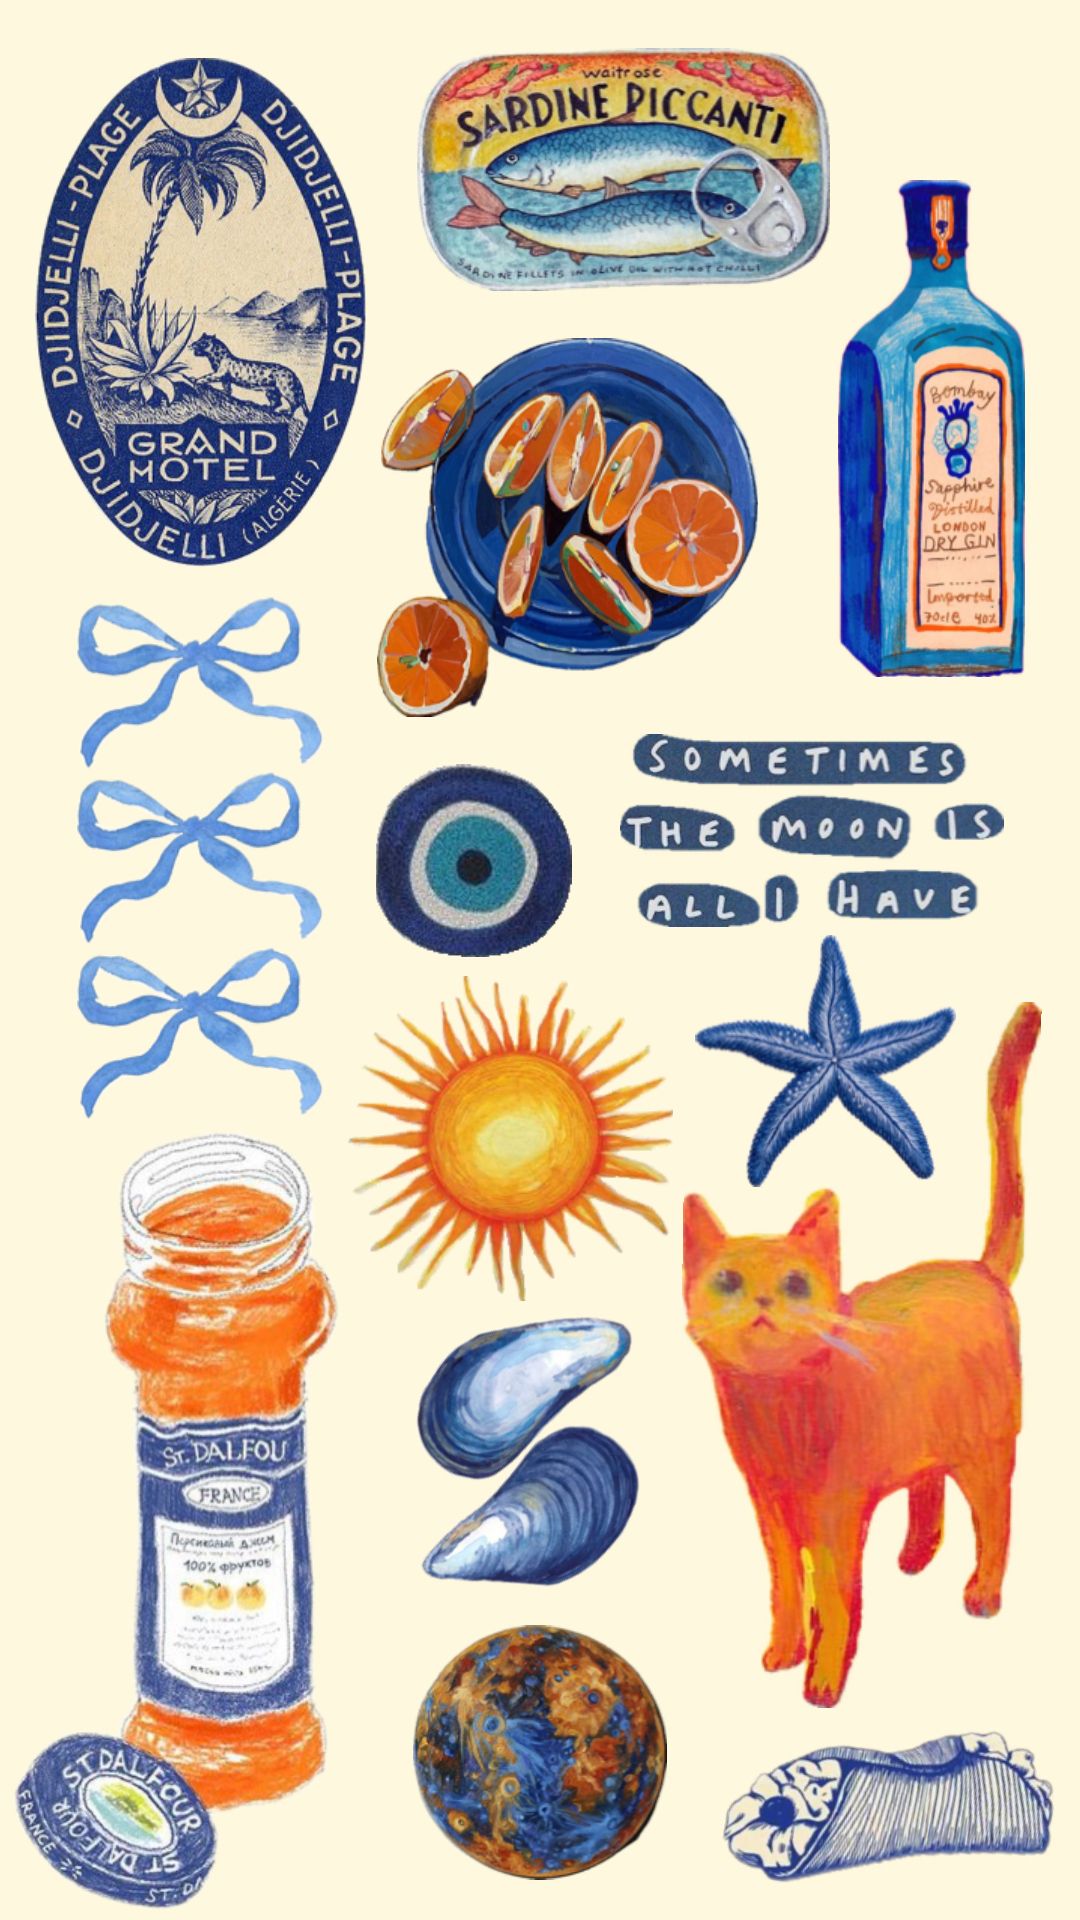 DJIDJELLI-PLAGE
DJIDJELLI-PLAGE
GRAND
MOTEL
DJIDJELLI (ALGÉRIE)
waitrose
SARDINE PICCANTI
SARDINE FILLETS IN OLIVE OIL WITH HOT CHILLI
Bombay
Sapphire
Distilled
LONDON
DRY GIN
Imported
70cle 40%
SOMETIMES
THE MOON IS
ALL I HAVE
ST. DALFOU
FRANCE
Персиковый джем
100% фруктов
ST DALFOUR
ST DALFOUR
FRANCE
ST. D